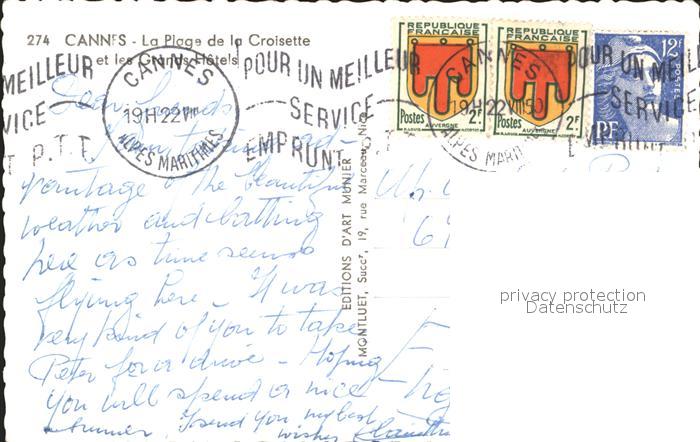 274 CANNES - La Plage de la Croisette
et les Grands Hôtels
MEILLEUR
VICE
T P.T.T.
CANNES
19H 22 VIII
ALPES MARITIMES
POUR UN MEILLEUR
SERVICE
EMPRUNT
REPUBLIQUE FRANÇAISE
Postes 2F
AUVERGNE
REPUBLIQUE FRANÇAISE
Postes 2F
AUVERGNE
19H 22 VIII 50
12F
POSTES
RF
POUR UN MEILLEUR
SERVICE
EDITIONS D'ART MUNIER
MONTLUET, Succr, 19, rue Marceau, Nice
Dear friends
vantage of the beautiful
weather and bathing
here as time seems
flying here - It was
very kind of you to take
Peter for a drive - Hoping
you will spend a nice
summer, I send you my best
wishes
privacy protection
Datenschutz